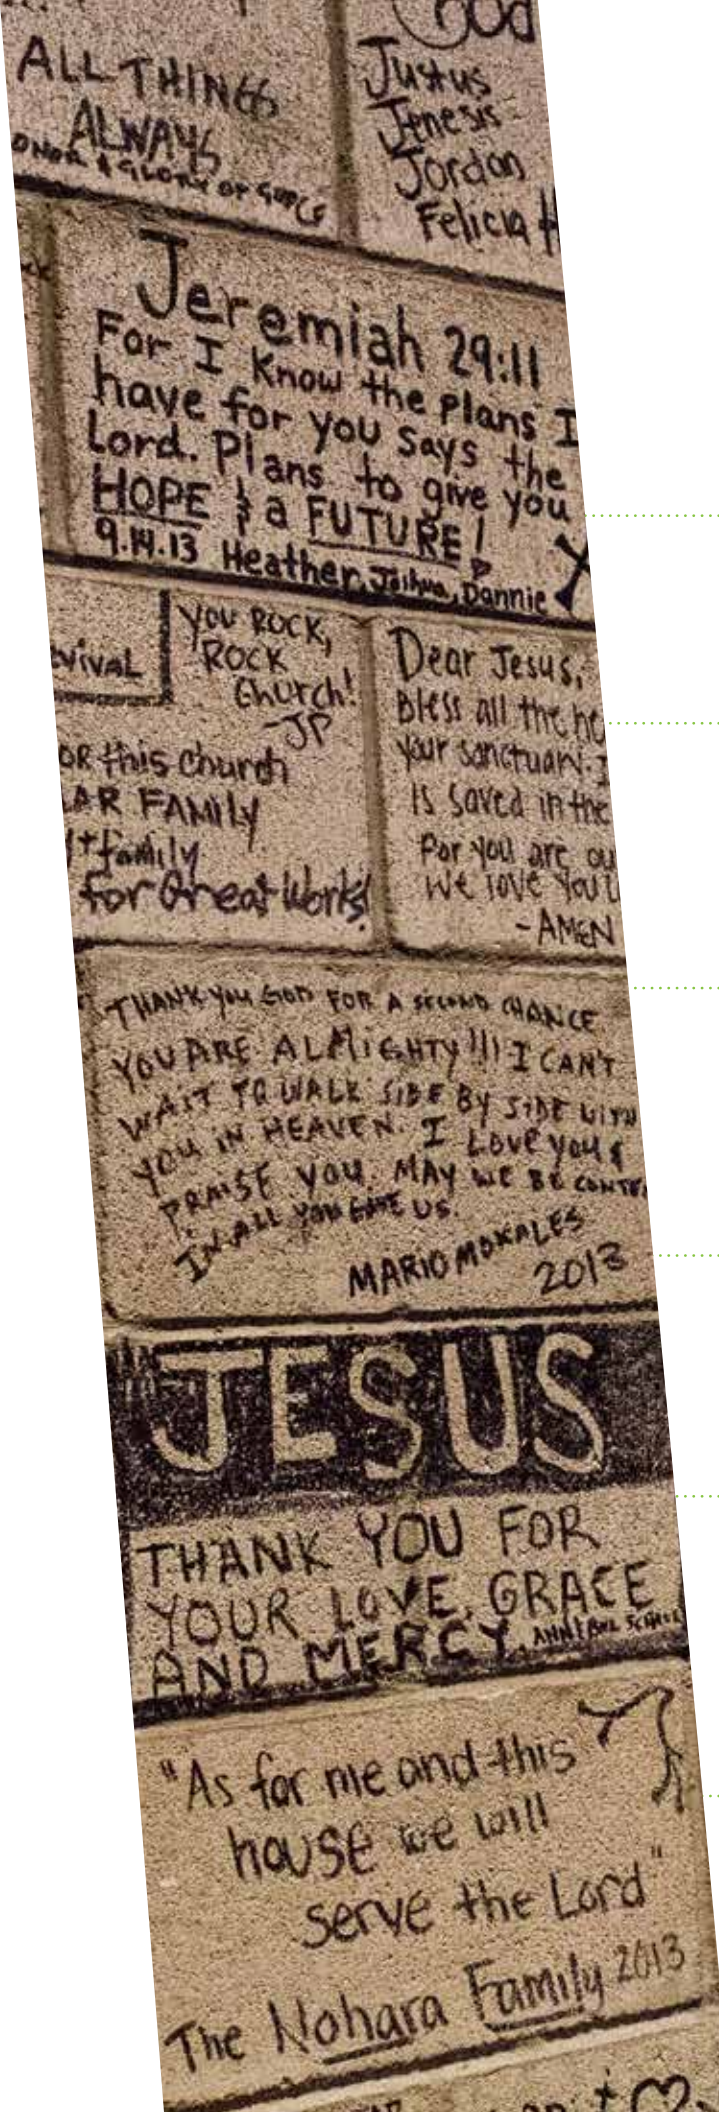 ALL THINGS
ALWAYS
& GLORY OF
God
Justus
Jenesis
Jordan
Felicia H
Jeremiah 29:11
For I Know the plans I
have for you says the
Lord. Plans to give you
HOPE & a FUTURE!
9.14.13 Heather, Joshua, Dannie
vival
YOU ROCK,
ROCK
Church!
-JP
OR this church
AR FAMily
family
for Great Works!
Dear Jesus,
Bless all the
your sanctuary.
Is Saved in the
For you are ou
We love You
-AMEN
THANK YOU GOD FOR A SECOND CHANCE
YOU ARE ALMIGHTY!!!! I CAN'T
WAIT TO WALK SIDE BY SIDE WITH
YOU IN HEAVEN. I LOVE YOU &
PRAISE YOU. MAY WE BE CONTE
IN ALL YOU GIVE US.
MARIO MORALES
2013
JESUS
THANK YOU FOR
YOUR LOVE, GRACE
AND MERCY.
"As for me and this
house we will
serve the Lord"
The Nohara Family 2013